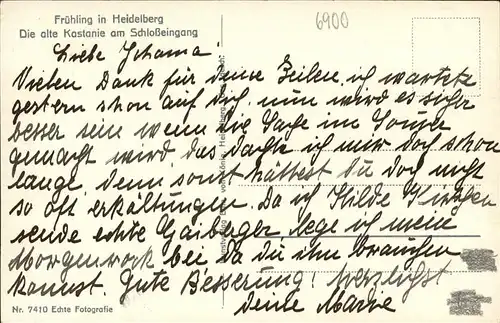 Frühling in Heidelberg
Die alte Kastanie am Schloßeingang
6900
Liebe Johama!
Vielen Dank für deine Zeilen. ich wartete
gestern schon auf dich. nun wird es sicher
besser sein wenn die Sache im
gemacht wird, das dachte ich mir doch schon
lange, denn sonst hättest du doch nicht
so oft erkältungen. Da ich Hilde
sende echte lege ich mein
Morgenrock bei da du ihn brauchen
kannst. Gute Besserung! herzlichst
deine Marie
Nr. 7410 Echte Fotografie